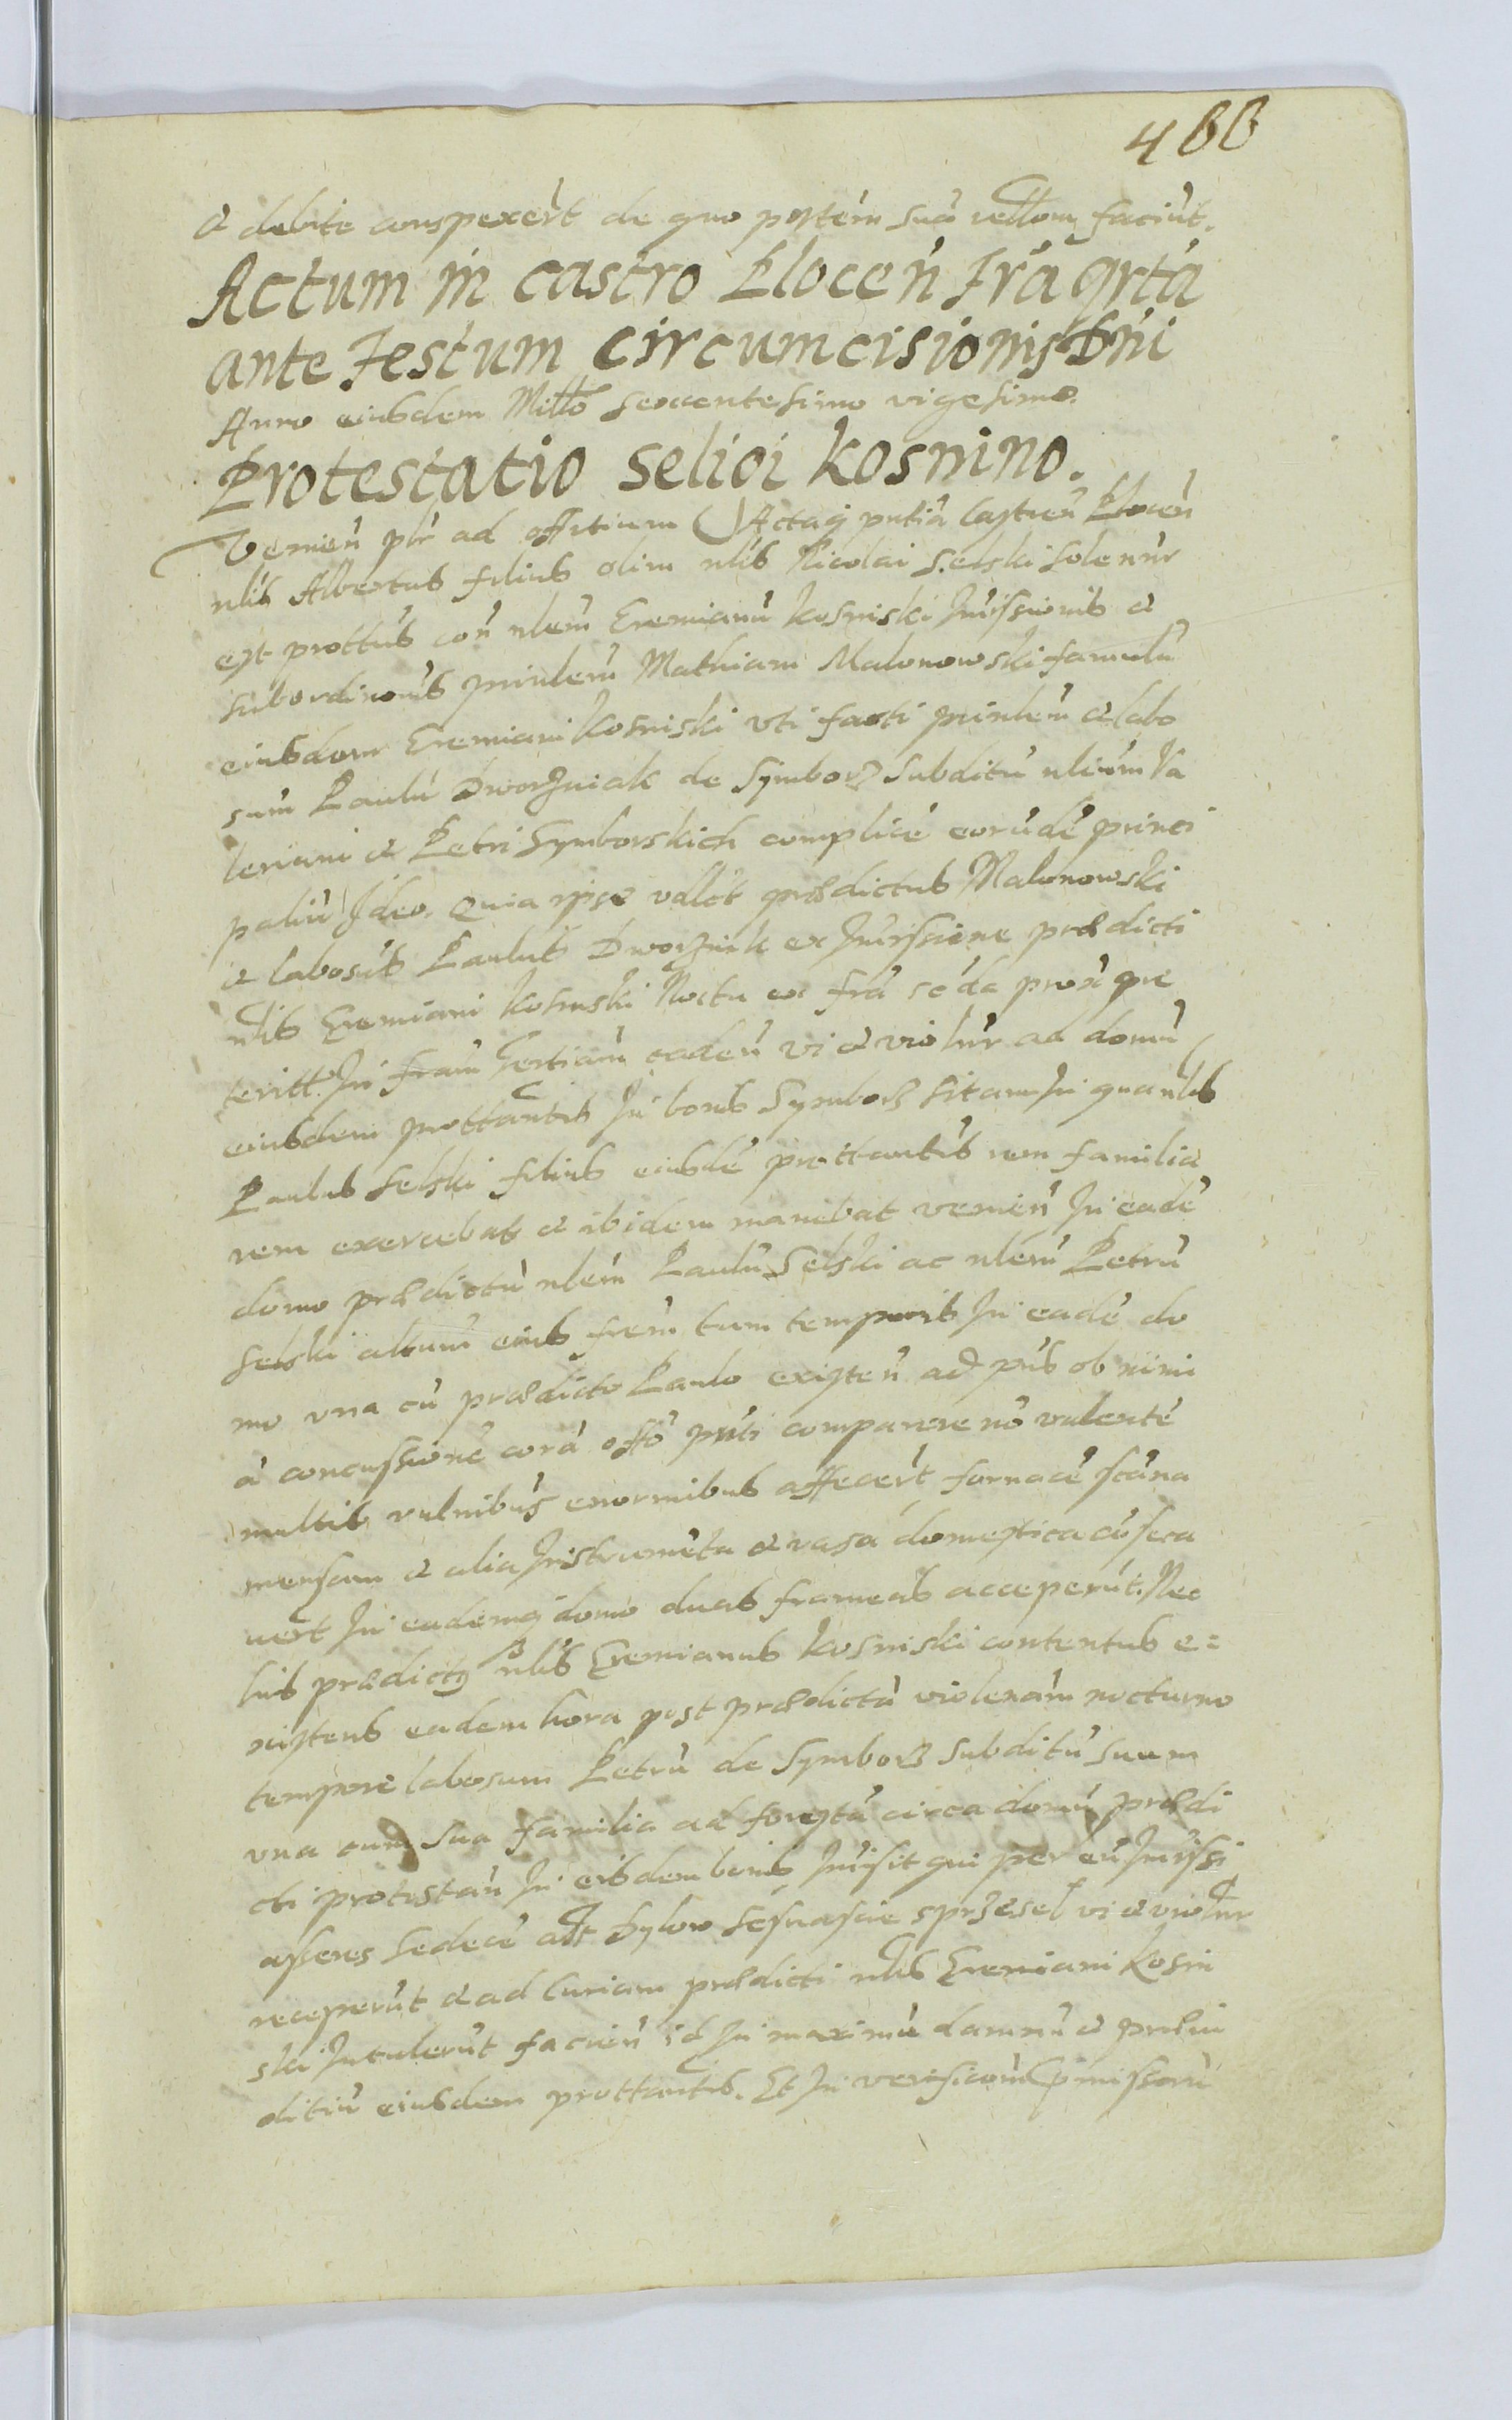 466
et debite conspexert de quo pntem sua rellom faciut.
Actum in castro Plocen fra qrta
ante Festum circumcisionis Dni
Anno eiusdem Millo sexcentesimo vigesimo.
Protestatio selici Kosnino.
Venien plr ad offitium Actaq pntia Castren Plocen
nlis Albertus filius olim nlis Nicolai Selski solennr
est prottus con nlem Eremianu Kosniski Inissionis et
subordinonis prinlem Mathiam Malonowski famulu
eiusdem Eremiani Kosniski vti facti prinlem et labo
sum Paulu Dworzniak de Symborz subditu nlium Va
leriani et Petri Symborskich complice eorude princi
paliu Ideo. Quia ipse vallet prædictus Malonowski
et labosus Paulus Dworznik ex Inissione prædicti
nlis Eremiani Kosniski Noctu ex fra secda prox præ
teritt. In fram Tertiam caden vi et violnr ad domu
eiusdem prottantis In bonis Symborz sitam In qua nlis
Paulus Selski filius eiusde prottantis rem familia
rem exercebat et ibidem manebat venien In eade
domo prædictu nlem Paulu Selski ac nlem Petru
Selski altum eius frem tum temporis In eade do
mo vna cu prædicto Paulo existen ad pns ob nimi
a concussione cora offo pnti comparere no valente
multis vulnibus enormibus affecert fornace scana
mensam et alia Instrumeta et vasa domestica cose
uert In eademq domo duas frameas acceperut. Nec
his prædictq nlis Eremianus Kosniski contentus e=
xistens eadem hora post prædicta violenam nocturno
tempore labosum Petru de Symborz subditu suum
vna cum sua familia ad foresta circa domu prædi
cti protestan In eisdem bonis Inisit qui per eu Inissi
asseres sedece alt Bylow sesnascie sprzesel vi et violnr
receperut et ad Curiam prædicti nlis Eremiani Kosni
ski Intulerut facien id In maximu damnu et præiu
ditiu eiusdem prottantis. Et In verificom præmissoru